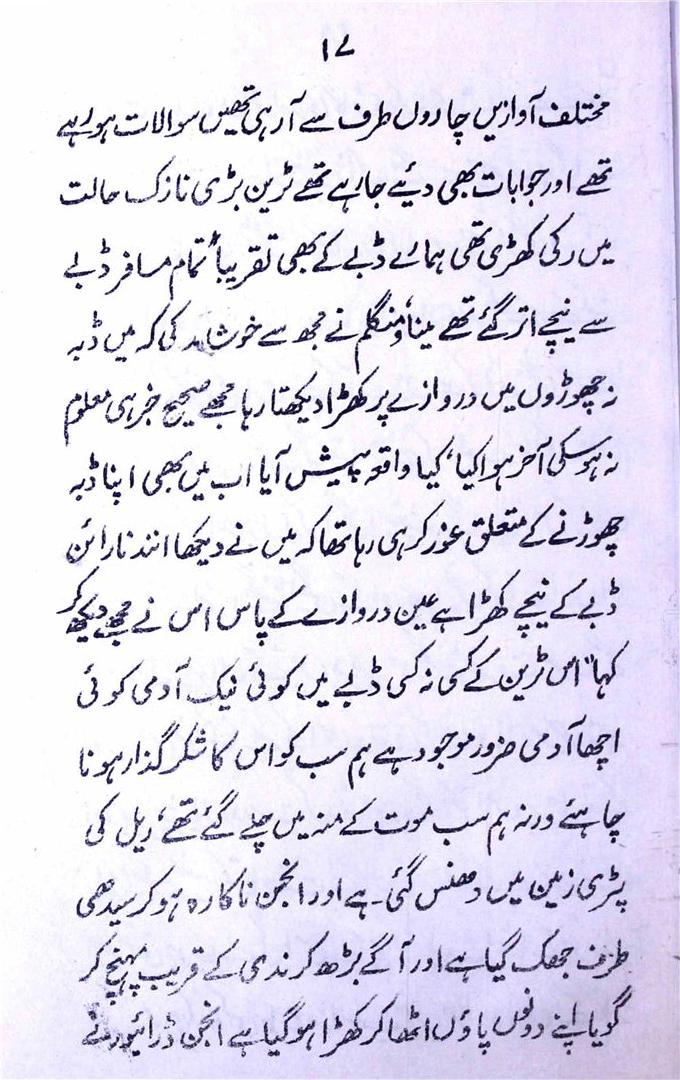 ۱۷
مختلف آوازیں چاروں طرف سے آ رہی تھیں سوالات ہو رہے
تھے اور جوابات بھی دئیے جا رہے تھے ٹرین بڑی نازک حالت
میں رکی کھڑی تھی ہمارے ڈبے کے بھی تقریباً تمام مسافر ڈبے
سے نیچے اتر گئے تھے میناؤمنگلم نے مجھ سے خوشامد کی کہ میں ڈبہ
نہ چھوڑوں میں دروازے پر کھڑا دیکھتا رہا مجھے صحیح خبر ہی معلوم
نہ ہو سکی آخر ہوا کیا، کیا واقعہ پیش آیا اب میں بھی اپنا ڈبہ
چھوڑنے کے متعلق غور کر ہی رہا تھا کہ میں نے دیکھا انند نارائن
ڈبے کے نیچے کھڑا ہے عین دروازے کے پاس اس نے مجھے دیکھ کر
کہا "اس ٹرین کے کسی نہ کسی ڈبے میں کوئی نیک آدمی کوئی
اچھا آدمی ضرور موجود ہے ہم سب کو اس کا شکر گذار ہونا
چاہئے ورنہ ہم سب موت کے منہ میں چلے گئے تھے، ریل کی
پٹری زمین میں دھنس گئی۔ ہے اور انجن ناکارہ ہو کر سیدھی
طرف جھک گیا ہے اور آگے بڑھ کر ندی کے قریب پہنچ کر
گویا اپنے دونوں پاؤں اٹھا کر کھڑا ہو گیا ہے انجن ڈرائیور نے